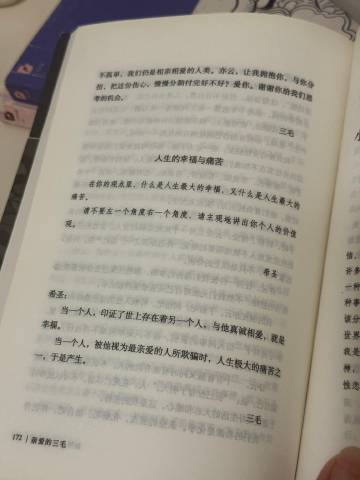 不孤单，我们仍是相亲相爱的人类。亦云，让我拥抱你，与你分
担，把这份伤心，慢慢分期付完好不好？爱你。谢谢你给我们思
考的机会。
三毛
人生的幸福与痛苦
在你的观点里，什么是人生最大的幸福，又什么是人生最大的
痛苦。
请不要左一个角度右一个角度，请主观地讲出你个人的价值
观。
希圣
希圣：
当一个人，印证了世上存在着另一个人，与他真诚相爱，就是
幸福。
当一个人，被他视为最亲爱的人所欺骗时，人生极大的痛苦之
一，于是产生。
三毛
172 | 亲爱的三毛